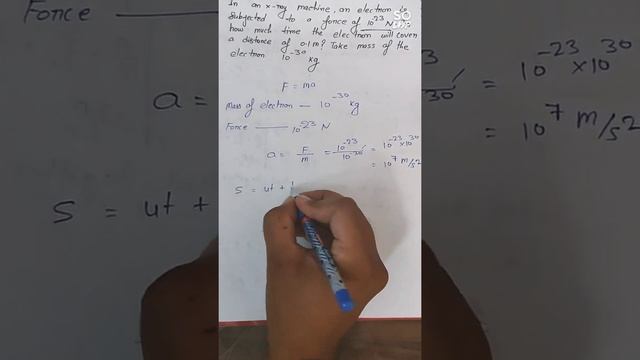 In an x-ray machine, an electron is
subjected to a force of 10⁻²³ N
how much time the electron will cover
a distance of 0.1m? Take mass of the
electron 10⁻³⁰ kg
F = ma
Mass of electron — 10⁻³⁰ kg
Force — 10⁻²³ N
a = F/m = 10⁻²³/10⁻³⁰ = 10⁻²³ × 10³⁰
= 10⁷ m/s²
S = ut + 1